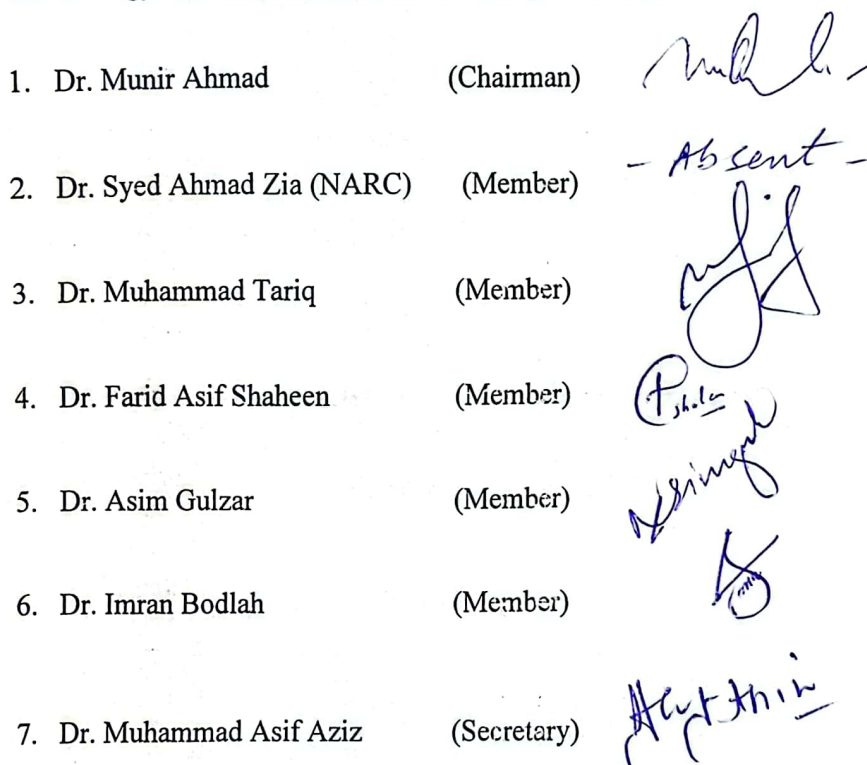 1. Dr. Munir Ahmad (Chairman)
- Absent -
2. Dr. Syed Ahmad Zia (NARC) (Member)
3. Dr. Muhammad Tariq (Member)
4. Dr. Farid Asif Shaheen (Member)
5. Dr. Asim Gulzar (Member)
6. Dr. Imran Bodlah (Member)
7. Dr. Muhammad Asif Aziz (Secretary)